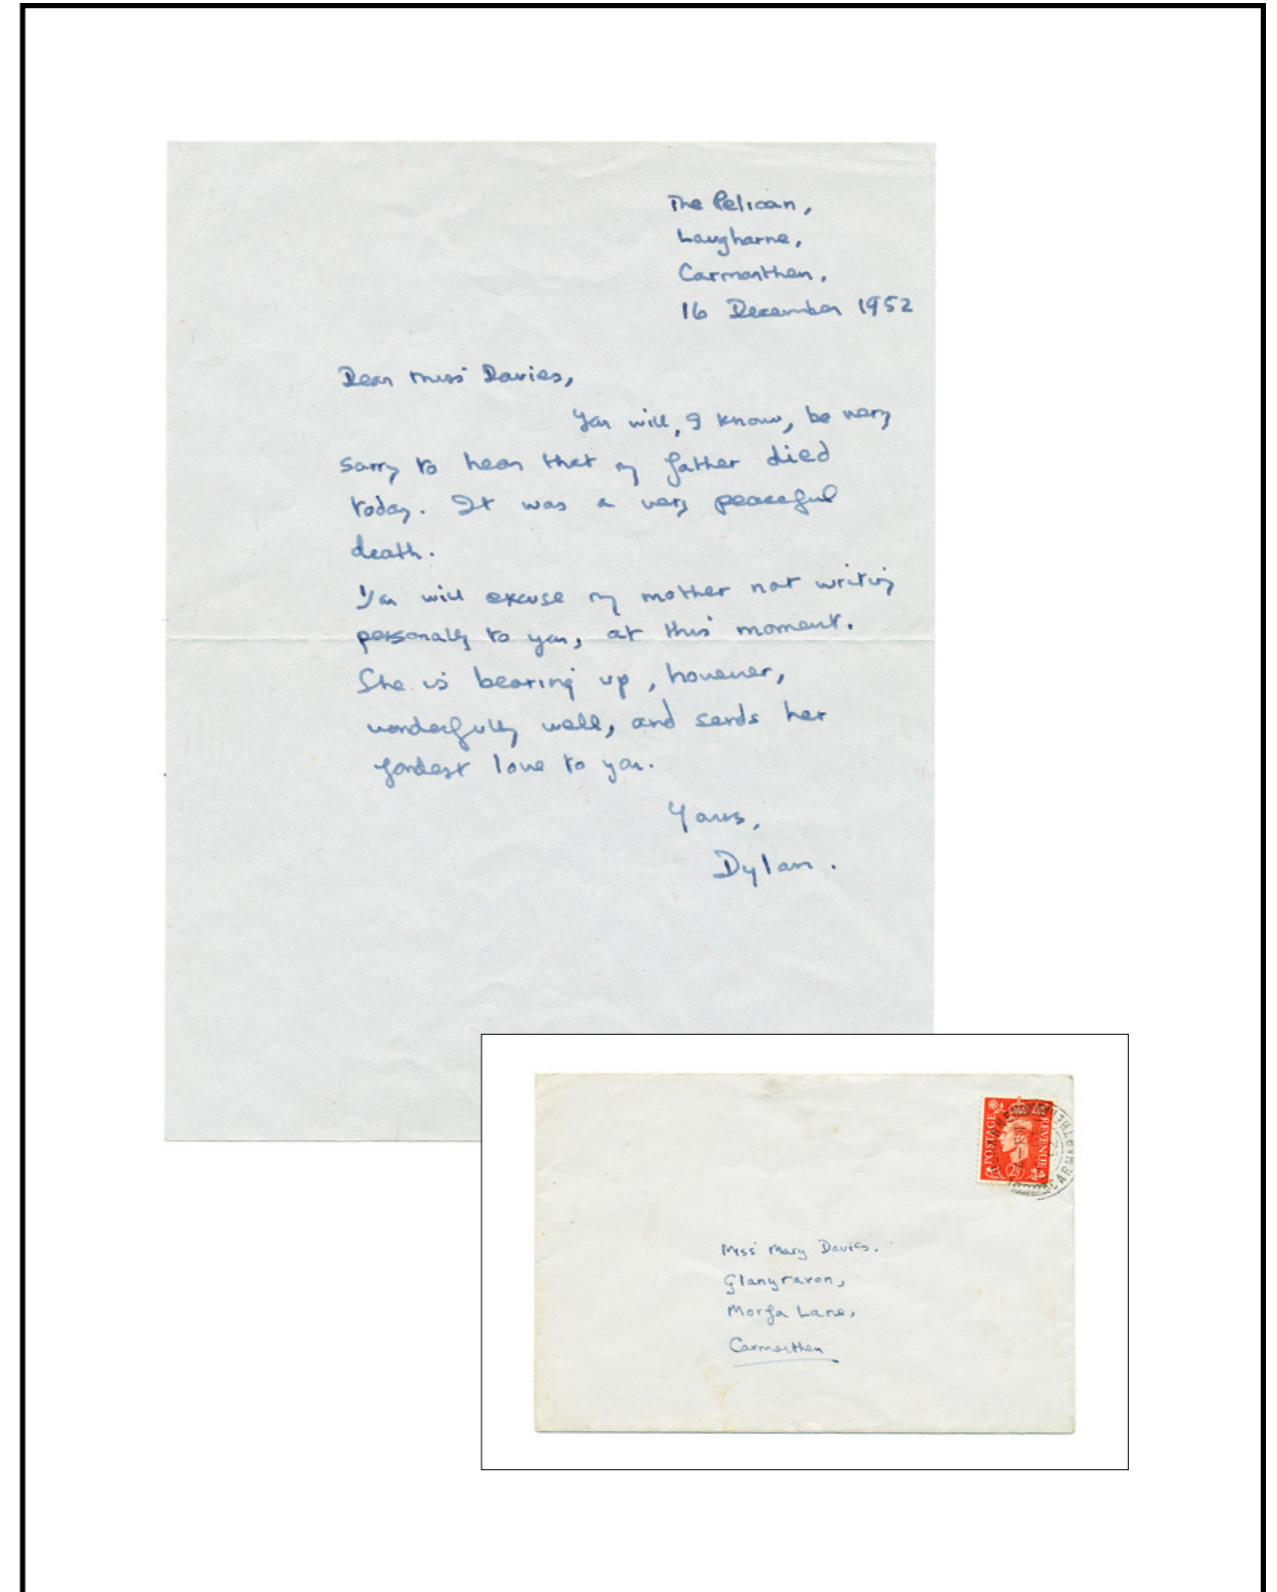 The Pelican,
Laugharne,
Carmarthen,
16 December 1952
Dear Miss Davies,
You will, I know, be very
sorry to hear that my father died
today. It was a very peaceful
death.
You will excuse my mother not writing
personally to you, at this moment.
She is bearing up, however,
wonderfully well, and sends her
fondest love to you.
Yours,
Dylan.
POSTAGE REVENUE
2D
CARMARTHEN
Miss Mary Davies,
Glanyravon,
Morfa Lane,
Carmarthen